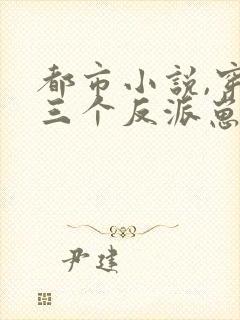 都市小说,穿
三个反派崽
尹建